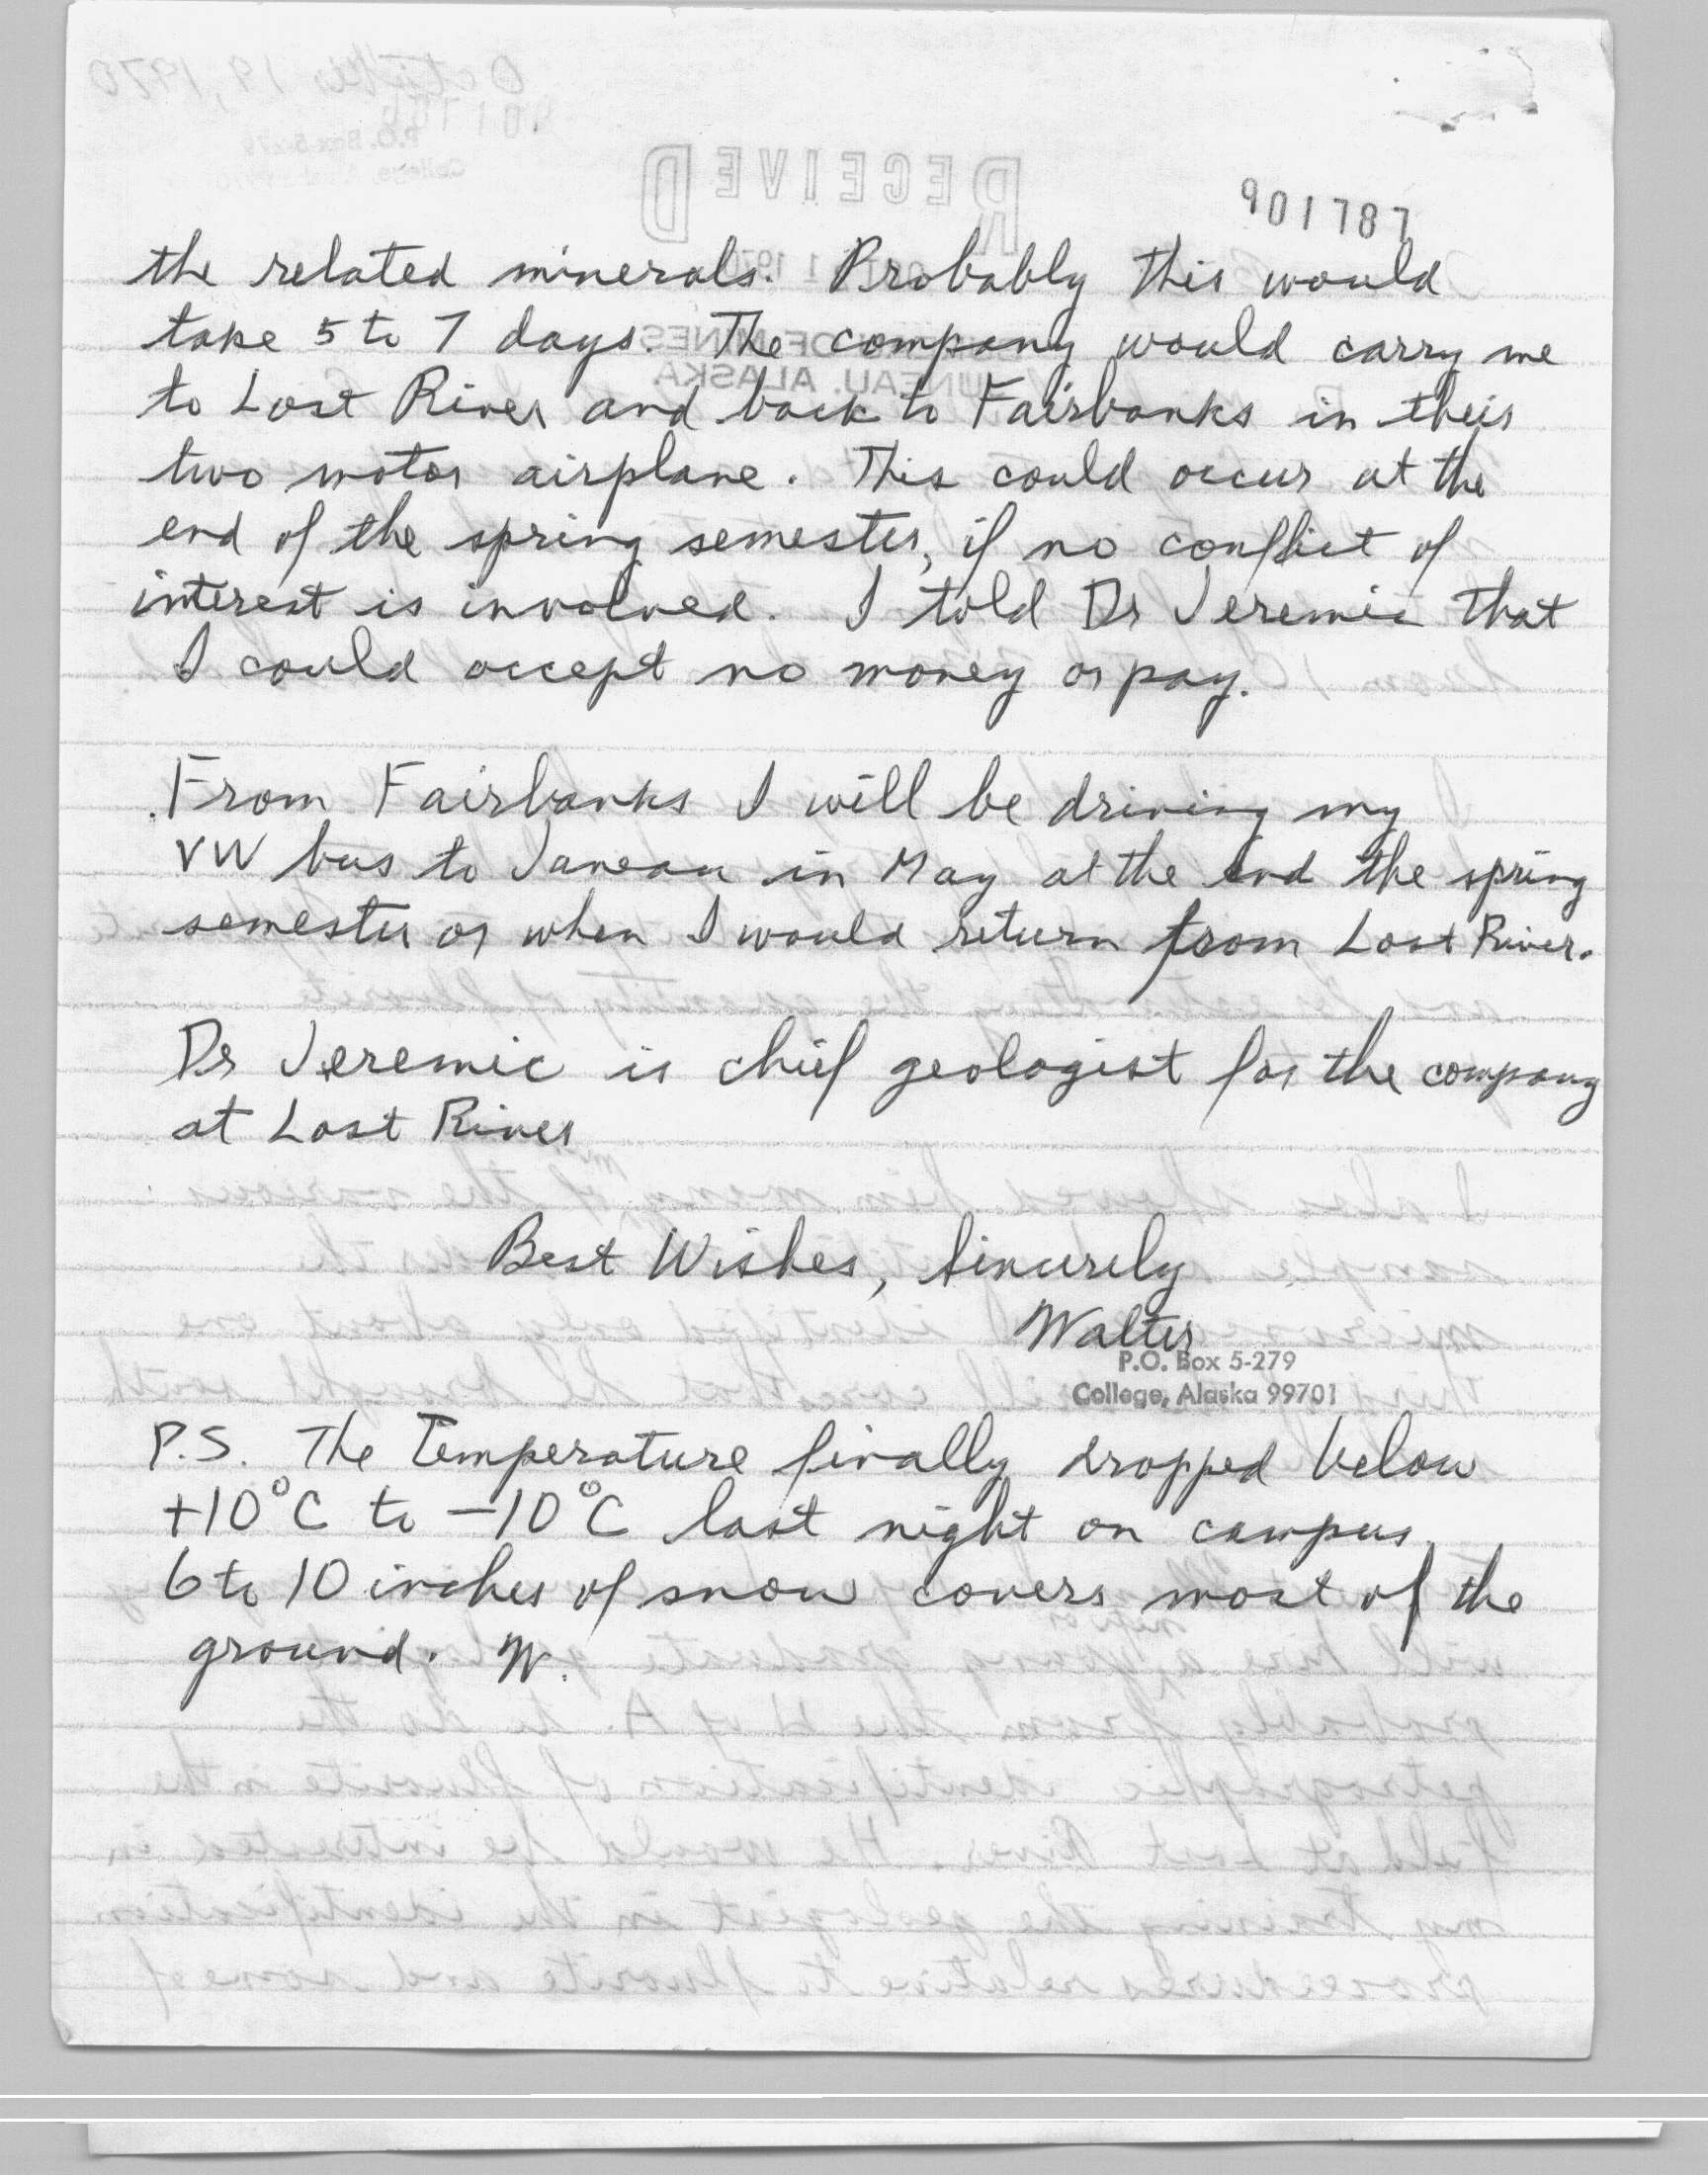 901787
the related minerals. Probably this would
take 5 to 7 days. The company would carry me
to Lost River and back to Fairbanks in their
two motor airplane. This could occur at the
end of the spring semester, if no conflict of
interest is involved. I told Dr Jeremic that
I could accept no money or pay.
From Fairbanks I will be driving my
VW bus to Juneau in May at the end the spring
semester or when I would return from Lost River.
Dr Jeremic is chief geologist for the company
at Lost River
Best Wishes, Sincerely
Walter
P.O. Box 5-279
College, Alaska 99701
P.S. The Temperature finally dropped below
+10°C to -10°C last night on campus.
6 to 10 inches of snow covers most of the
ground. W.